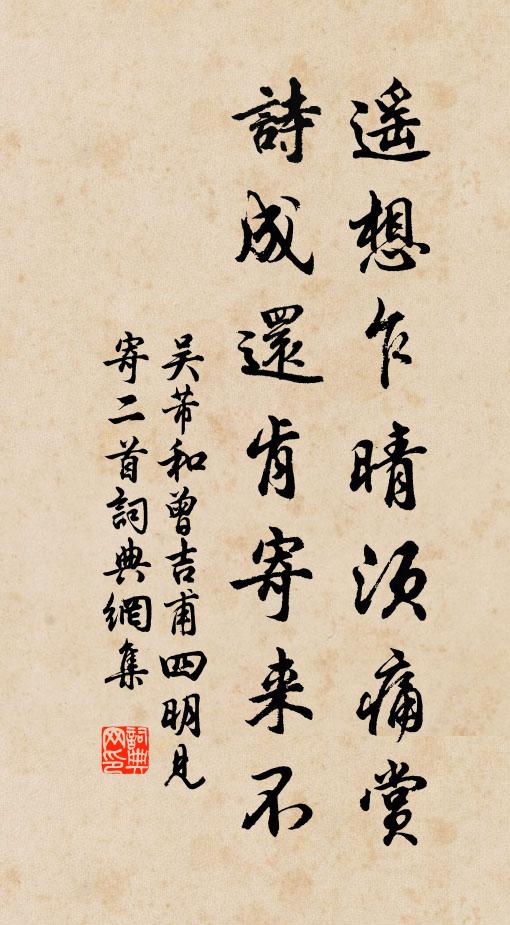 遥想乍晴須痛賞
詩成還肯寄来不
吴芾和曾吉甫四明見
寄二首詞典網集
詞典网印